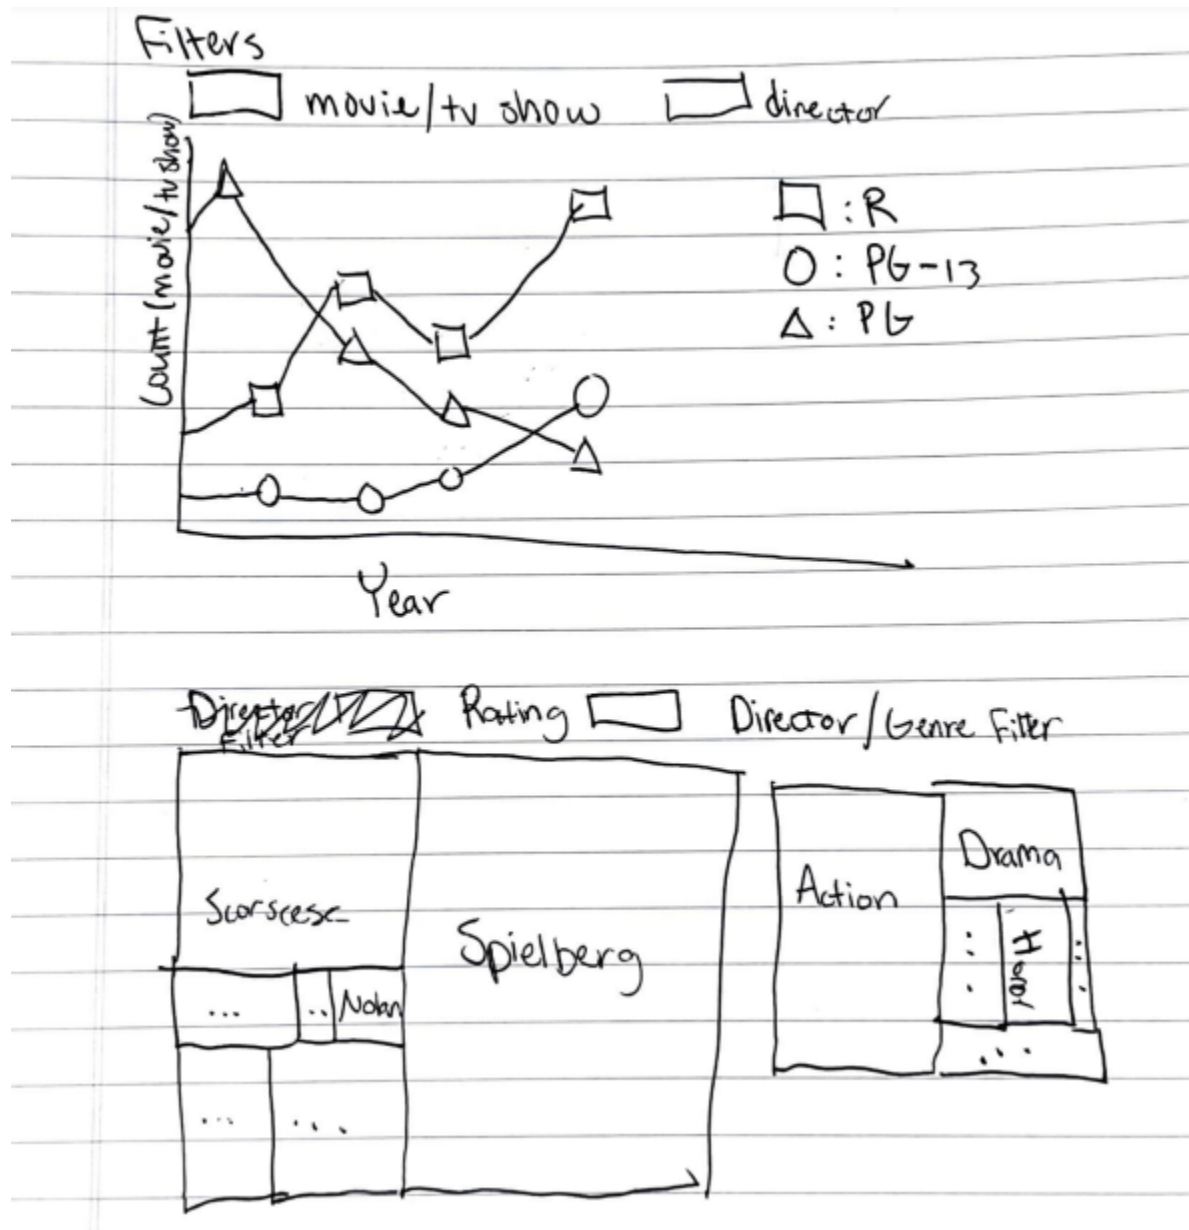 Filters
movie/tv show director
Count (movie/tv show)
: R
: PG-13
: PG
Year
Director/
Filter
Rating Director/Genre Filter
Scorscese
Spielberg
... .. Nolan
... ...
Action
Drama
...